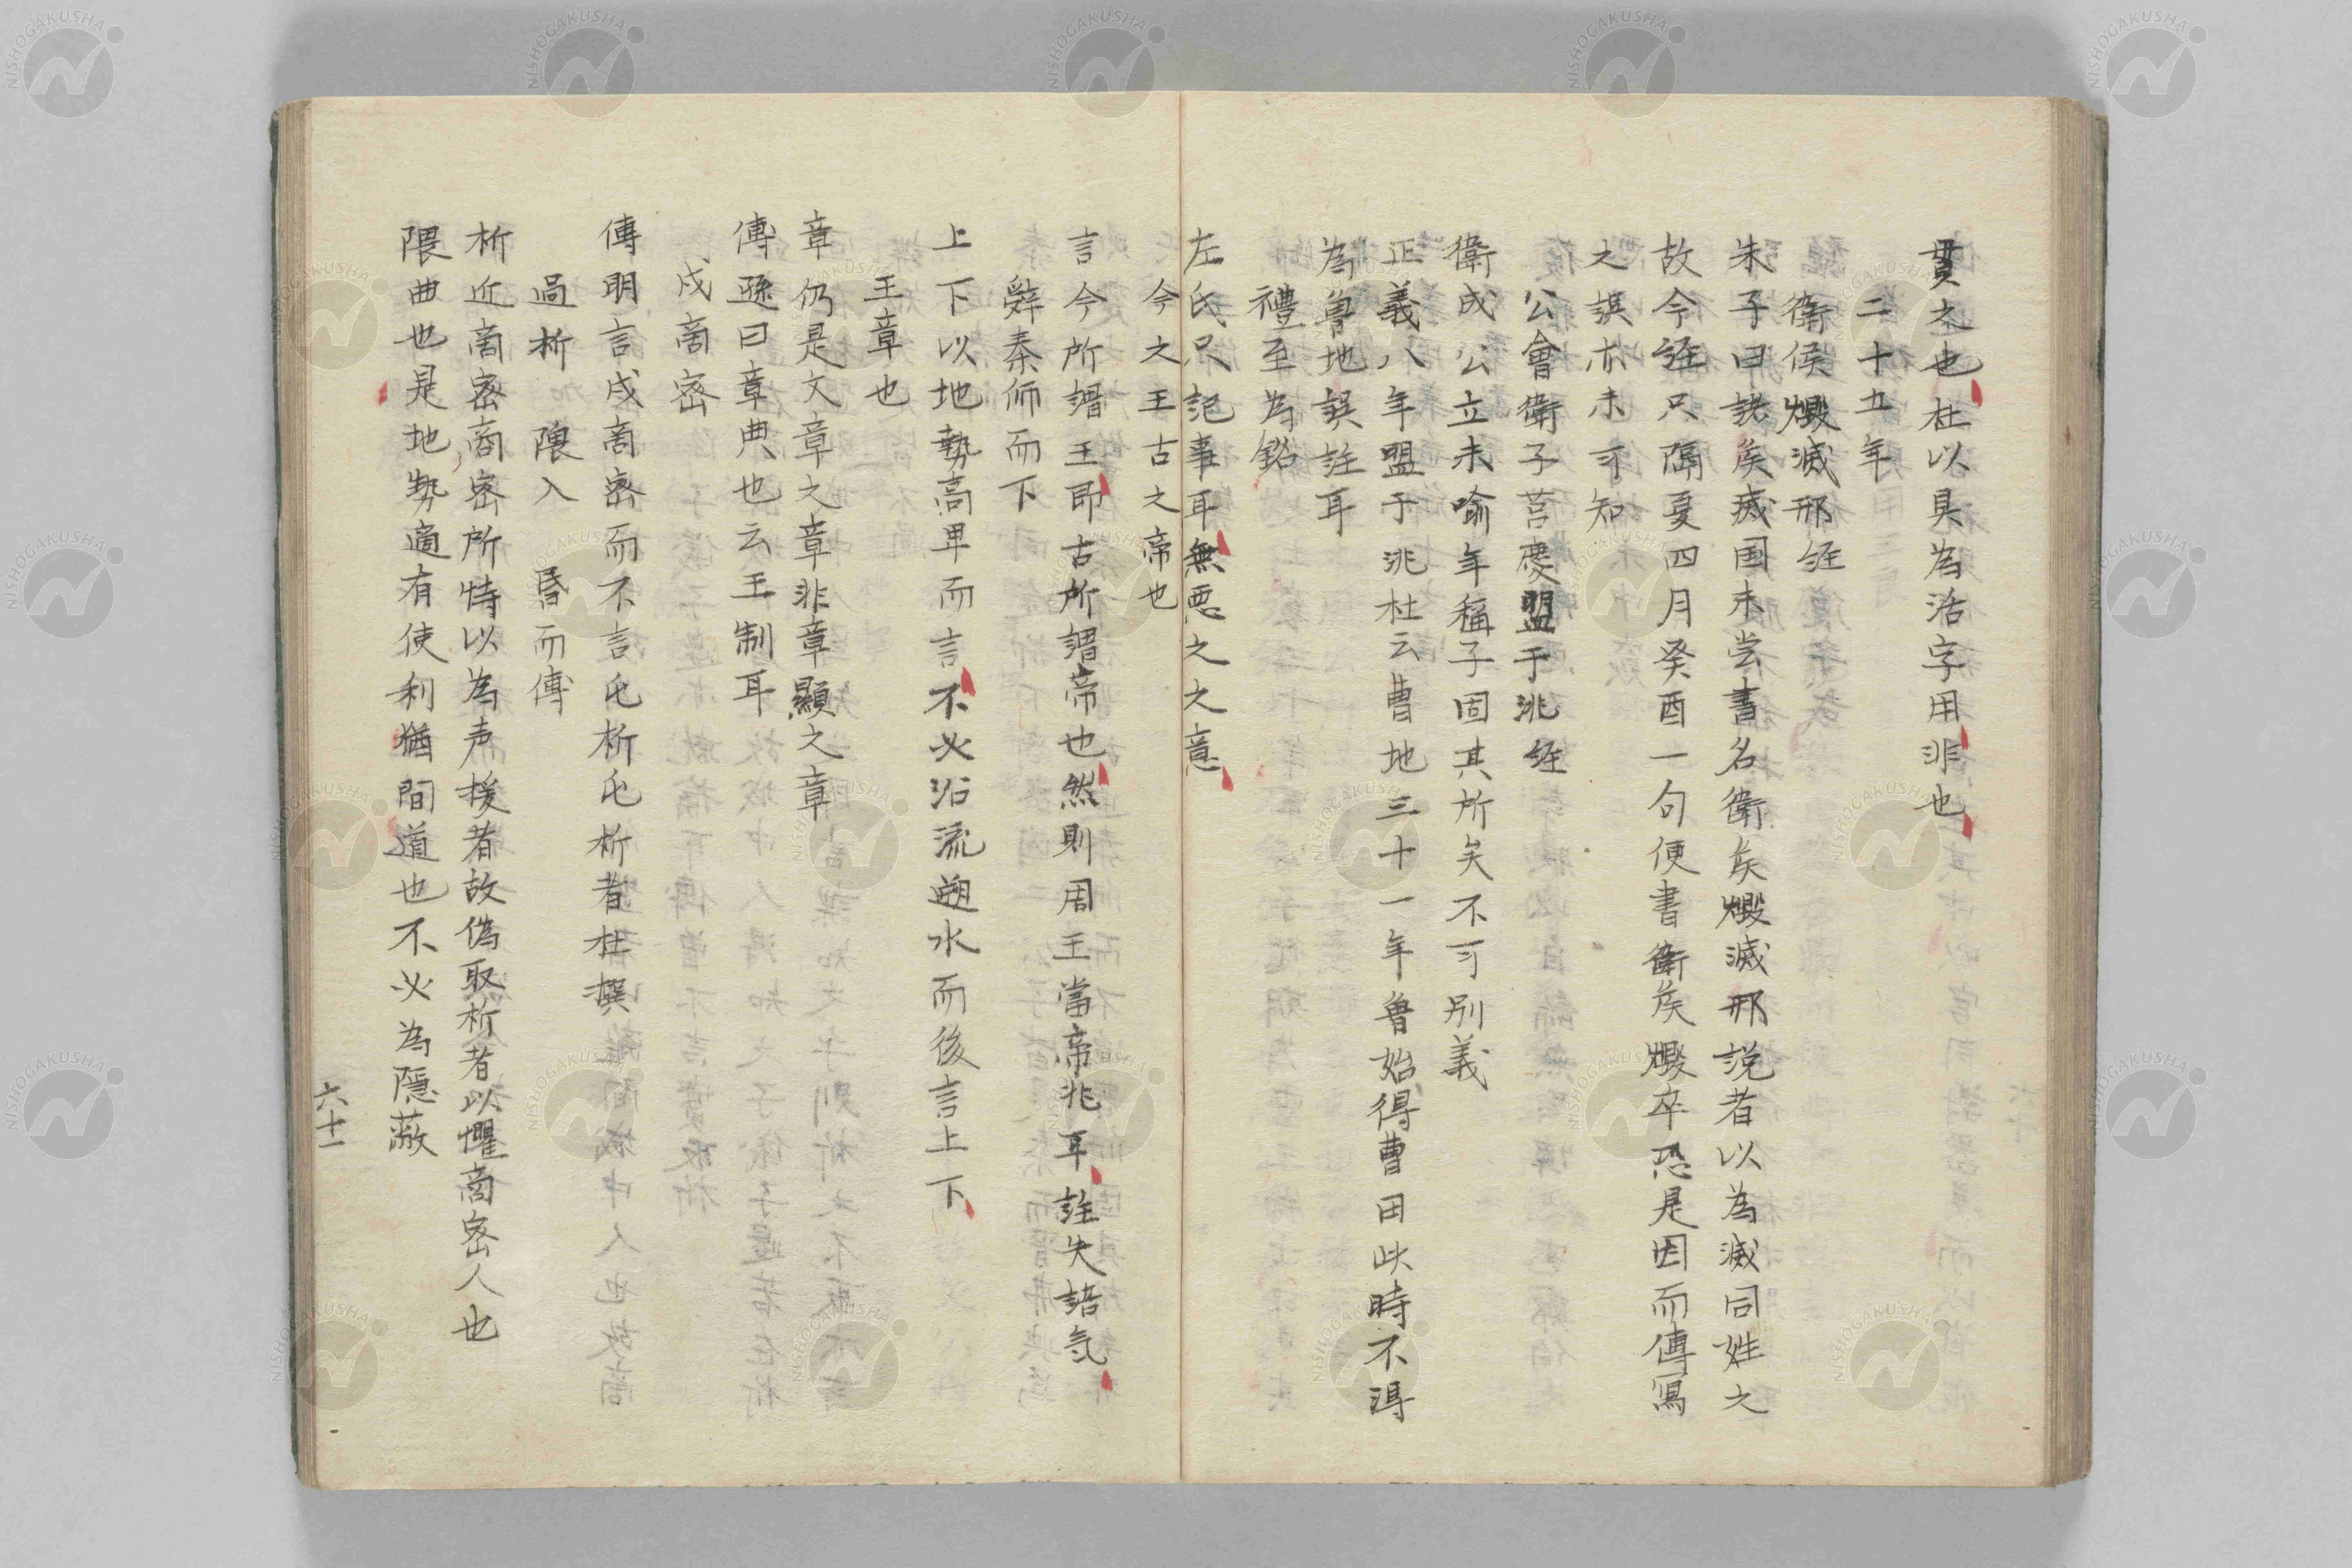 貫之也杜以具為活字用非也
二十五年
衛侯燬滅邢経
朱子曰諸矦滅国未尝書名衛矦燬滅邢説者以為滅同姓之
故今経只隔夏四月癸酉一句便書衛矦燬卒恐是因而傳寫
之誤亦未可知
公會衛子莒慶盟于洮経
衛成公立未喻年稱子固其所矣不可別義
正義八年盟于洮杜云曹地三十一年魯始得曹田此時不得
為魯地誤註耳
禮至為銘
左氏只記事耳無悪之之意
今之王古之帝也
言今所謂王即古所謂帝也然則周王當帝兆耳註失語気
辤秦師而下
上下以地勢高卑而言不必沿流遡水而後言上下
王章也
章仍是文章之章非章顯之章
傳遜曰章典也云王制耳
戍商宻
傳明言戍商宻而不言屯析屯析者杜撰
過析隈入昏而傅
析近商宻商宻所恃以為声援者故偽取析者以懼商宻人也
隈曲也是地勢適有使利猶間道也不必為隱蔽
六十一
NISHOGAKUSHA